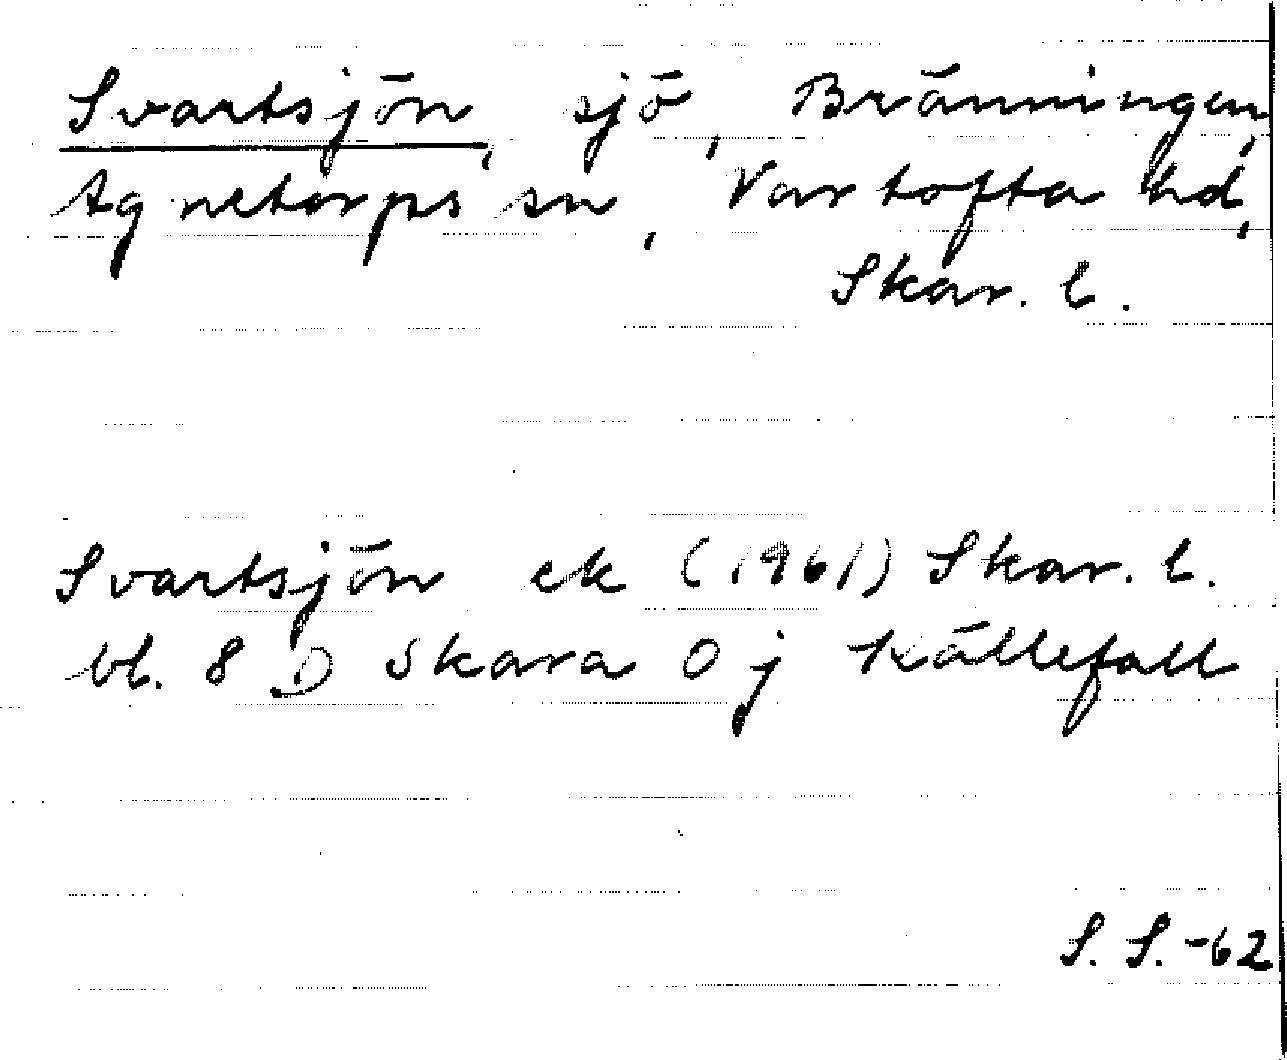 Svartsjön, sjö, Bränningen,
Agnetorps sn, Vartofta hd,
Skar. l.
Svartsjön ek (1961) Skar. l.
bl. 8 D Skara 0 j Källefall
S. S. -62